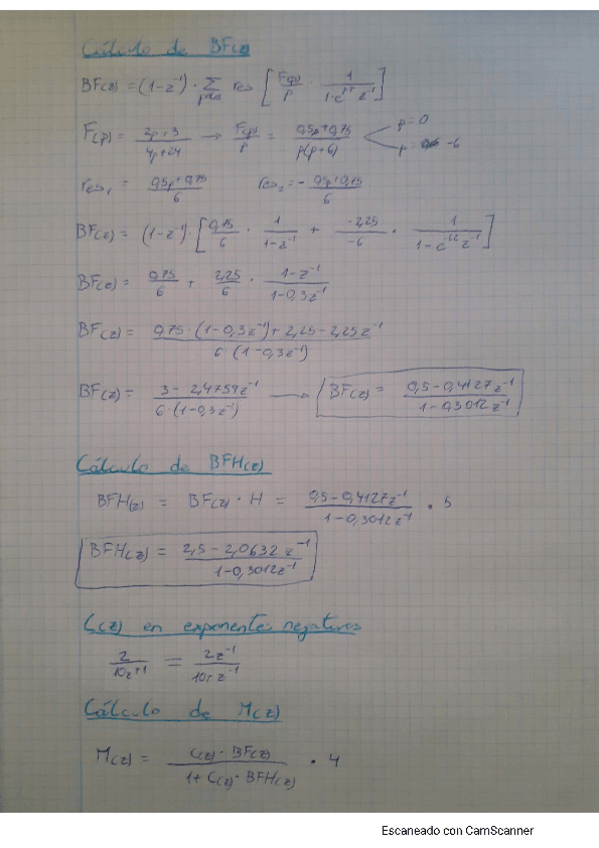 Cálculo de BF(z)
BF(z) = (1-z⁻¹) · Σ res [ F(p)/p · 1/(1-e^(pT) z⁻¹) ]
F(p) = (2p+3)/(4p+24) → F(p)/p = (0,5p+0,75)/(p(p+6)) p=0
p= -6
res₁ = (0,5p+0,75)/6 res₂ = - (0,5p+0,75)/6
BF(z) = (1-z⁻¹) · [ 0,75/6 · 1/(1-z⁻¹) + -2,25/-6 · 1/(1-e^(-1,2) z⁻¹) ]
BF(z) = 0,75/6 + 2,25/6 · (1-z⁻¹)/(1-0,3z⁻¹)
BF(z) = (0,75·(1-0,3z⁻¹)+2,25-2,25z⁻¹)/(6·(1-0,3z⁻¹))
BF(z) = (3-2,4759z⁻¹)/(6·(1-0,3z⁻¹)) → BF(z) = (0,5-0,4127z⁻¹)/(1-0,3012z⁻¹)
Cálculo de BFH(z)
BFH(z) = BF(z)·H = (0,5-0,4127z⁻¹)/(1-0,3012z⁻¹) · 5
BFH(z) = (2,5-2,0632z⁻¹)/(1-0,3012z⁻¹)
C(z) en exponentes negativos
2/(10z+1) = 2z⁻¹/(10+z⁻¹)
Cálculo de M(z)
M(z) = (C(z)·BF(z))/(1+C(z)·BFH(z)) · 4
Escaneado con CamScanner